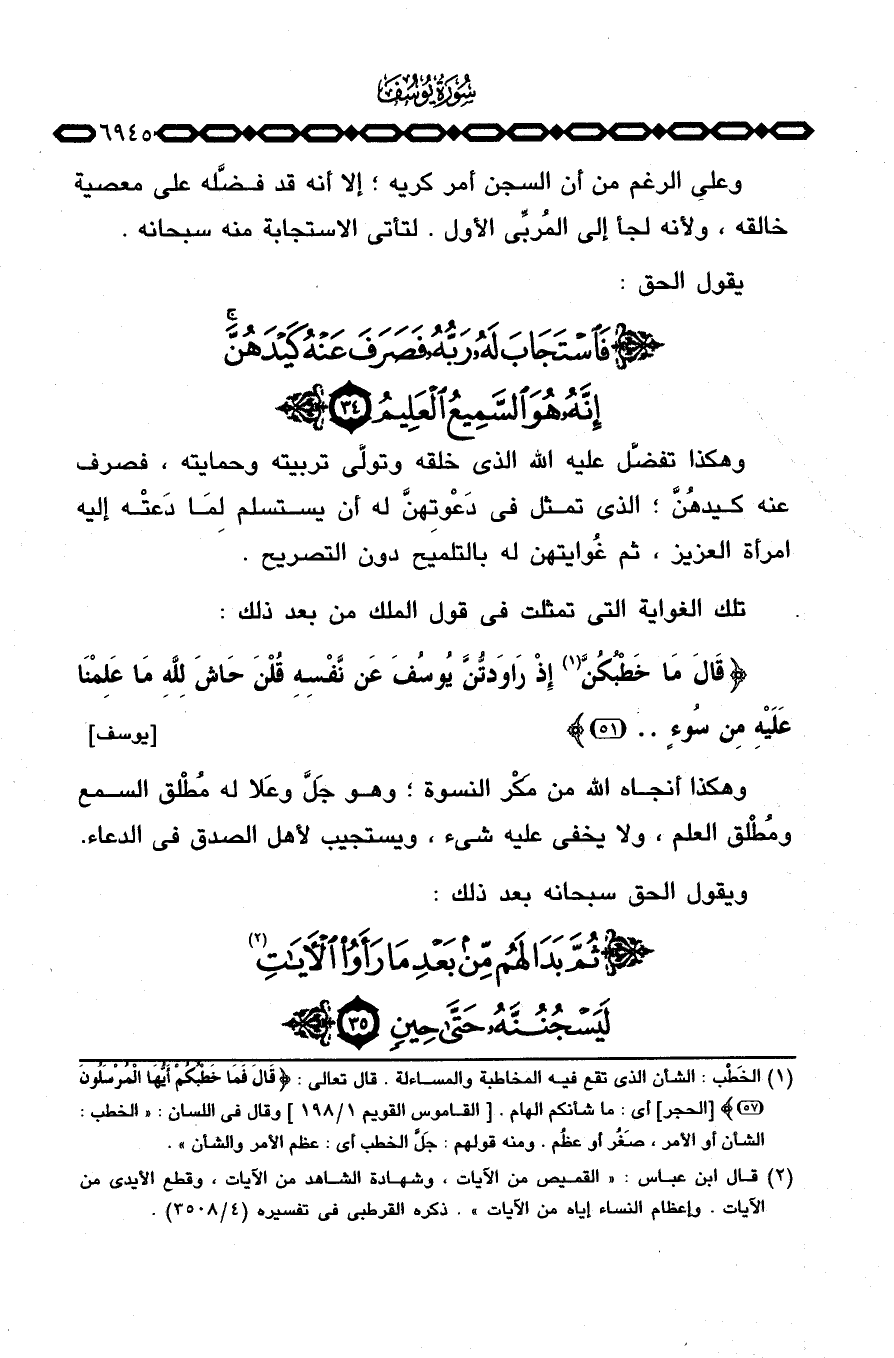 سُورَةُ يُوسُفَ
٦٩٤٥
وعلى الرغم من أن السجن أمر كريه ؛ إلا أنه قد فضَّله على معصية
خالقه ، ولأنه لجأ إلى المُربِّى الأول . لتأتى الاستجابة منه سبحانه .
يقول الحق :
فَٱسْتَجَابَ لَهُۥ رَبُّهُۥ فَصَرَفَ عَنْهُ كَيْدَهُنَّ ۚ
إِنَّهُۥ هُوَ ٱلسَّمِيعُ ٱلْعَلِيمُ ٣٤
وهكذا تفضَّل عليه الله الذى خلقه وتولَّى تربيته وحمايته ، فصرف
عنه كيدهُنَّ ؛ الذى تمثل فى دَعْوتهنَّ له أن يستسلم لمَا دَعتْه إليه
امرأة العزيز ، ثم غُوايتهن له بالتلميح دون التصريح .
تلك الغواية التى تمثلت فى قول الملك من بعد ذلك :
﴿ قَالَ مَا خَطْبُكُنَّ (١) إِذْ رَاوَدتُّنَّ يُوسُفَ عَن نَّفْسِهِ قُلْنَ حَاشَ لِلَّهِ مَا عَلِمْنَا
عَلَيْهِ مِن سُوءٍ .. (٥١) ﴾ [يوسف]
وهكذا أنجاه الله من مكْر النسوة ؛ وهو جَلَّ وعَلَا له مُطْلق السمع
ومُطْلق العلم ، ولا يخفى عليه شىء ، ويستجيب لأهل الصدق فى الدعاء.
ويقول الحق سبحانه بعد ذلك :
ثُمَّ بَدَا لَهُم مِّنۢ بَعْدِ مَا رَأَوُا۟ ٱلْـَٔايَـٰتِ (٢)
لَيَسْجُنُنَّهُۥ حَتَّىٰ حِينٍ ٣٥
(١) الخَطْب : الشأن الذى تقع فيه المخاطبة والمساءلة . قال تعالى : ﴿ قَالَ فَمَا خَطْبُكُمْ أَيُّهَا الْمُرْسَلُونَ
(٥٧) ﴾ [الحجر] أى : ما شأنكم الهام . [ القاموس القويم ١٩٨/١ ] وقال فى اللسان : « الخطب :
الشأن أو الأمر ، صَغُر أو عظُم . ومنه قولهم : جَلَّ الخطب أى : عظم الأمر والشأن » .
(٢) قال ابن عباس : « القميص من الآيات ، وشهادة الشاهد من الآيات ، وقطع الأيدى من
الآيات . وإعظام النساء إياه من الآيات » . ذكره القرطبى فى تفسيره (٣٥٠٨/٤) .